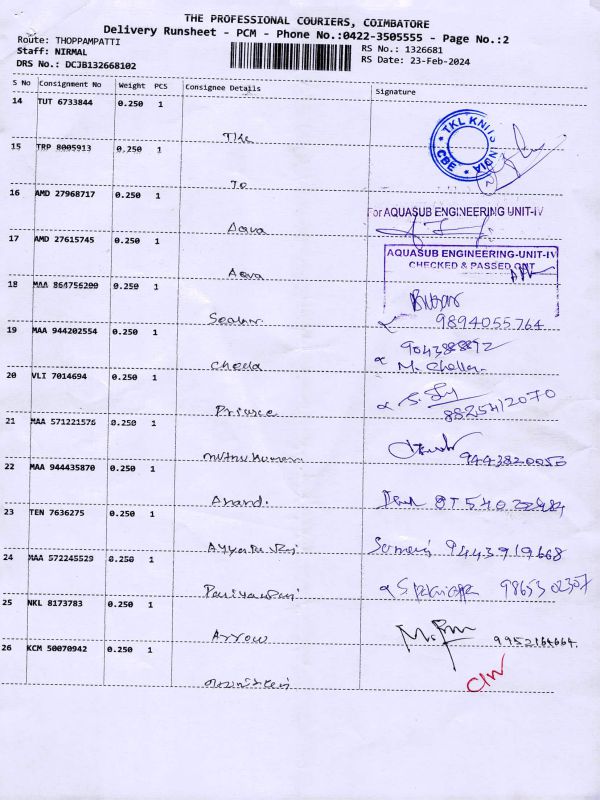 THE PROFESSIONAL COURIERS, COIMBATORE
Delivery Runsheet - PCM - Phone No.:0422-3505555 - Page No.:2
Route: THOPPAMPATTI
RS No.: 1326681
Staff: NIRMAL
RS Date: 23-Feb-2024
DRS No.: DCJB132668102
S No Consignment No Weight PCS Consignee Details Signature
14 TUT 6733844 0.250 1
TKL
TKL KNITS INDIA * CBE *
15 TRP 8005913 0.250 1
To
16 AMD 27968717 0.250 1
For AQUASUB ENGINEERING UNIT-IV
Aqua
17 AMD 27615745 0.250 1
AQUASUB ENGINEERING-UNIT-IV
CHECKED & PASSED OUT
Aqua
18 MAA 864756200 0.250 1
9894055764
19 MAA 944202554 0.250 1
9043888892
Chella
M. Chella
20 VLI 7014694 0.250 1
8825412070
21 MAA 571221576 0.250 1
Muthukumar
9443820050
22 MAA 944435870 0.250 1
Anand.
23 TEN 7636275 0.250 1
9443919668
24 MAA 572245529 0.250 1
98653 02307
25 NKL 8173783 0.250 1
Arrow
9952164664
26 KCM 50070942 0.250 1